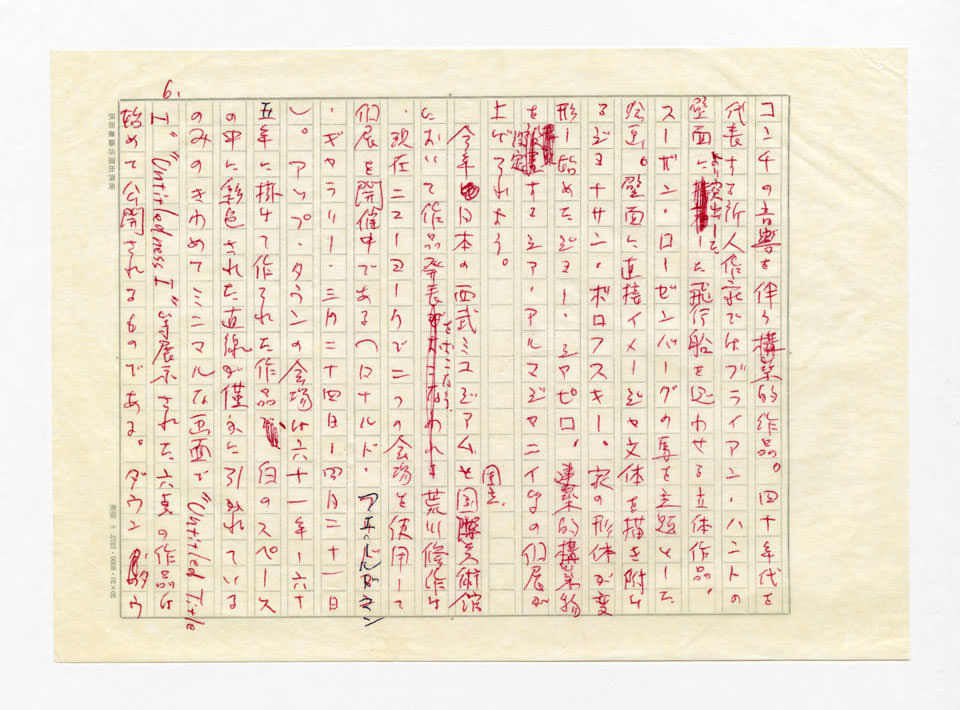 コンチの音響を伴う構築的作品。四十年代を
代表する新人作家ではブライアン・ハントの
壁面により突出した飛行船を思わせる立体作品、
スーザン・ローゼンバーグの馬を主題とした
絵画。壁面に直接イメージや文体を描き附け
るジョナサン・ボロフスキー。家の形体が変
形し始めたジョー・シャピロ、建築的構築物
を設定するシア・アルマジャニイ等の個展が
上げられよう。
今年日本の西武ミュジアムと国立国際美術館
において作品発表をおこなう荒川修作は
、現在ニューヨークで二つの会場を使用して
個展を開催中である(ロナルド・フェルドマン
・ギャラリー・三月二十四日ー四月二十一日
)。アップ・タウンの会場は六十一年ー六十
五年に掛けて作られた作品が、白のスペース
の中に彩色された直線が僅かに引かれている
のみのきわめてミニマルな画面で"Untitled Title
I" "Untitledness I"等展示された六点の作品は
始めて公開されるものである。ダウンタウ
6.